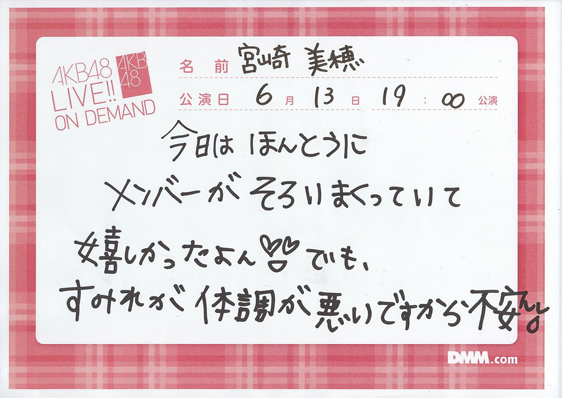 AKB48
LIVE!!
ON DEMAND
AKB
48
名前 宮崎 美穂
公演日 6月 13日 19:00公演
今日は ほんとうに
メンバーが そろいまくっていて
嬉しかったよん でも、
すみれが 体調が 悪いですから 不安
DMM.com